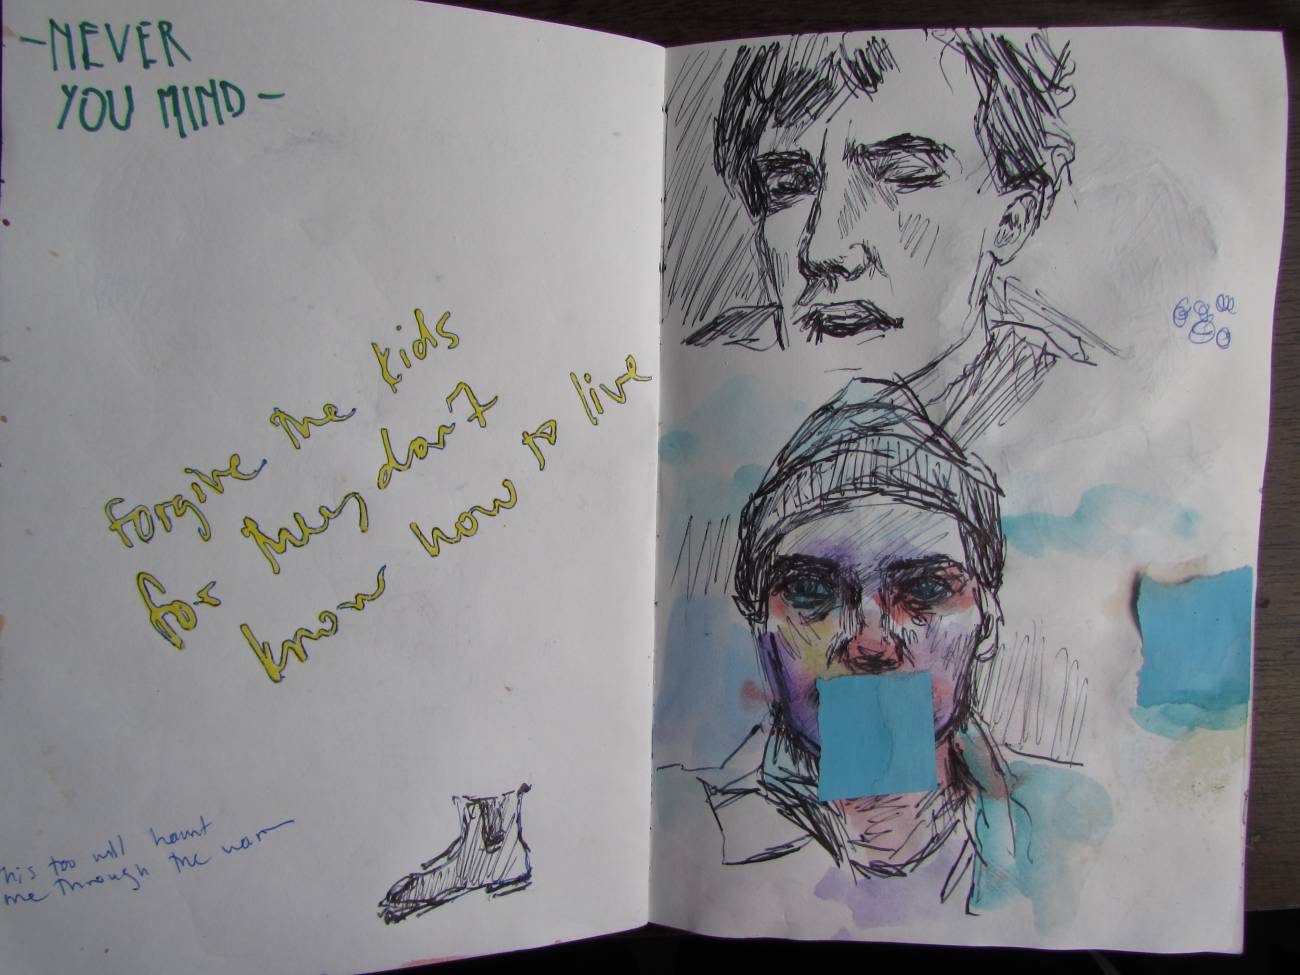 -NEVER
YOU MIND-
forgive the kids
for they don't
know how to live
this too will haunt
me through the war